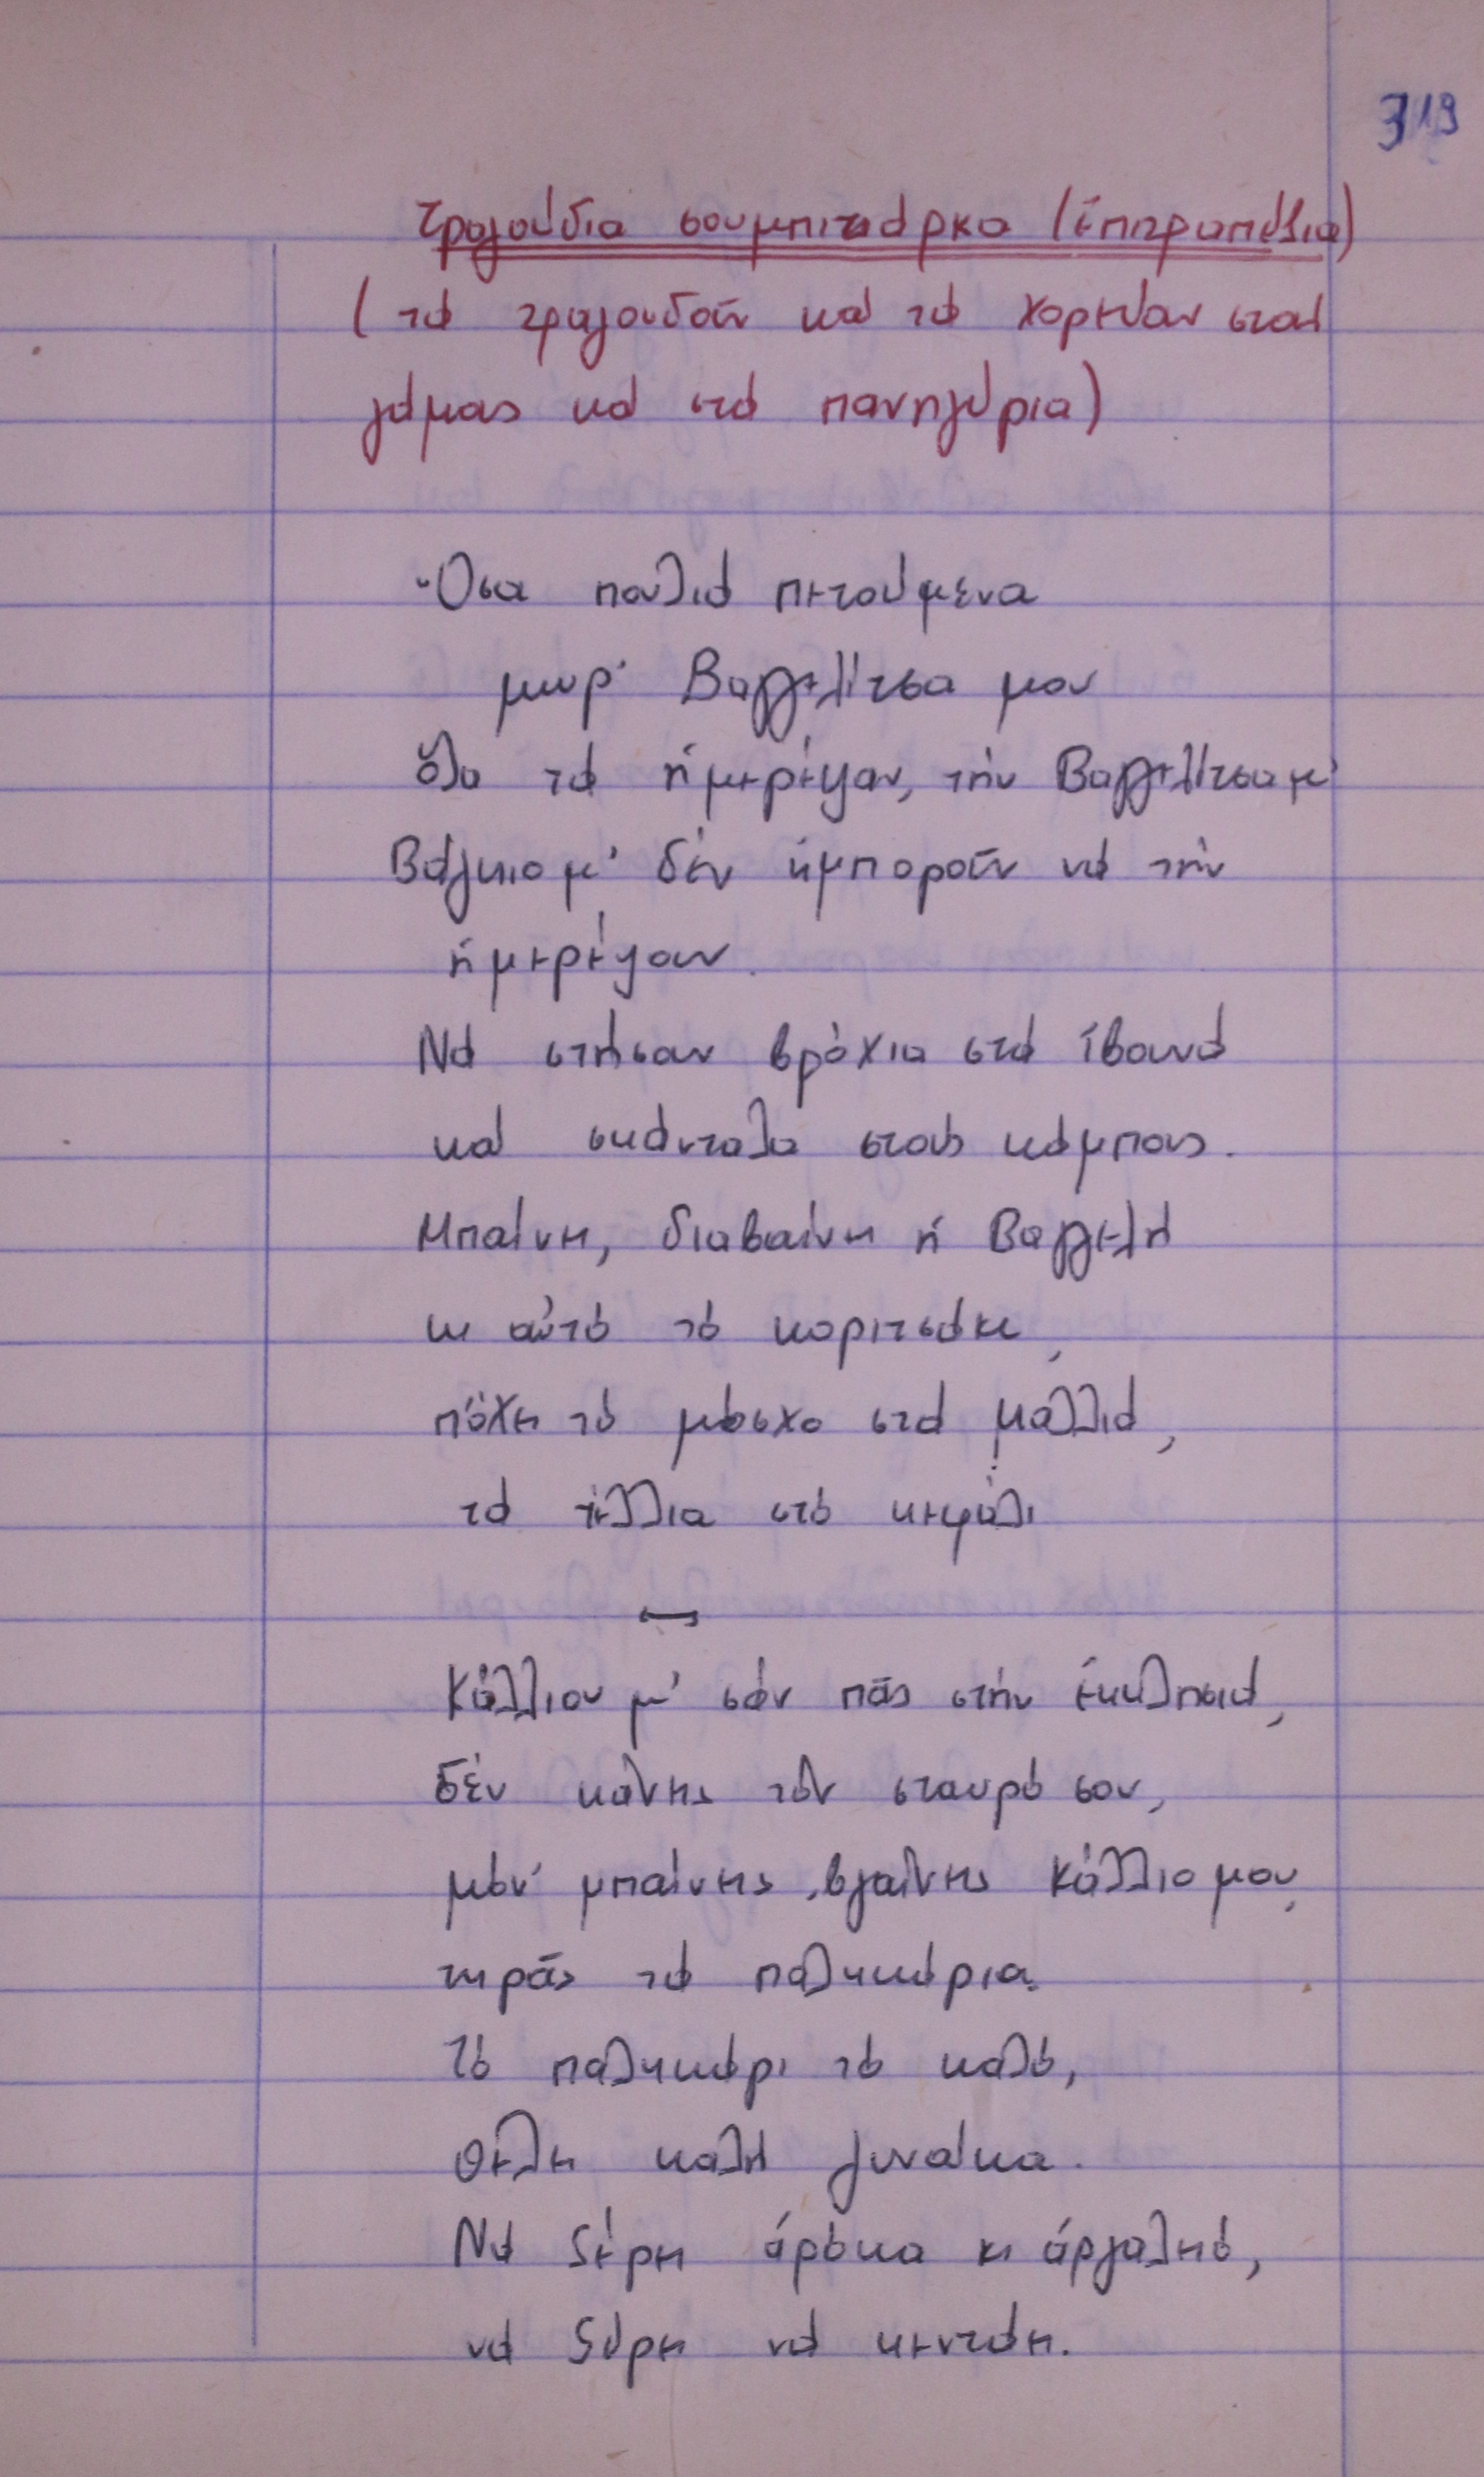 319
Τραγούδια σουμπιτιάρκα (ἐπιτραπέζια)
(τά τραγουδοῦν καί τά χορεύουν στούς
γάμους καί στά πανηγύρια)
Ὅσα πουλιά πετούμενα
μωρ' Βαγγελίτσα μου
ὅλα τά ἡμερέψαν, τήν Βαγγελίτσα μ'
Βάγκιο μ' δέν ἡμποροῦν νά τήν
ἡμερέψουν.
Νά στήσουν βρόχια στά ἰβουνά
καί σκάνταλα στούς κάμπους.
Μπαίνει, διαβαίνει ἡ Βαγγελή
κι αὐτό τό κοριτσάκι,
πὄχει τό μόσχο στά μαλλιά,
τά τέλλια στό κεφάλι
Κάλλιου μ' σάν πᾶς στήν ἐκκλησιά,
δέν κάνεις τόν σταυρό σου,
μόν' μπαίνεις, βγαίνεις Κάλλιο μου,
τηρᾶς τά παληκάρια.
Τό παληκάρι τό καλό,
θέλει καλή γυναίκα.
Νά ξέρει ἀρόκα κι ἀργαλειό,
νά ξύρει νά κεντάει.